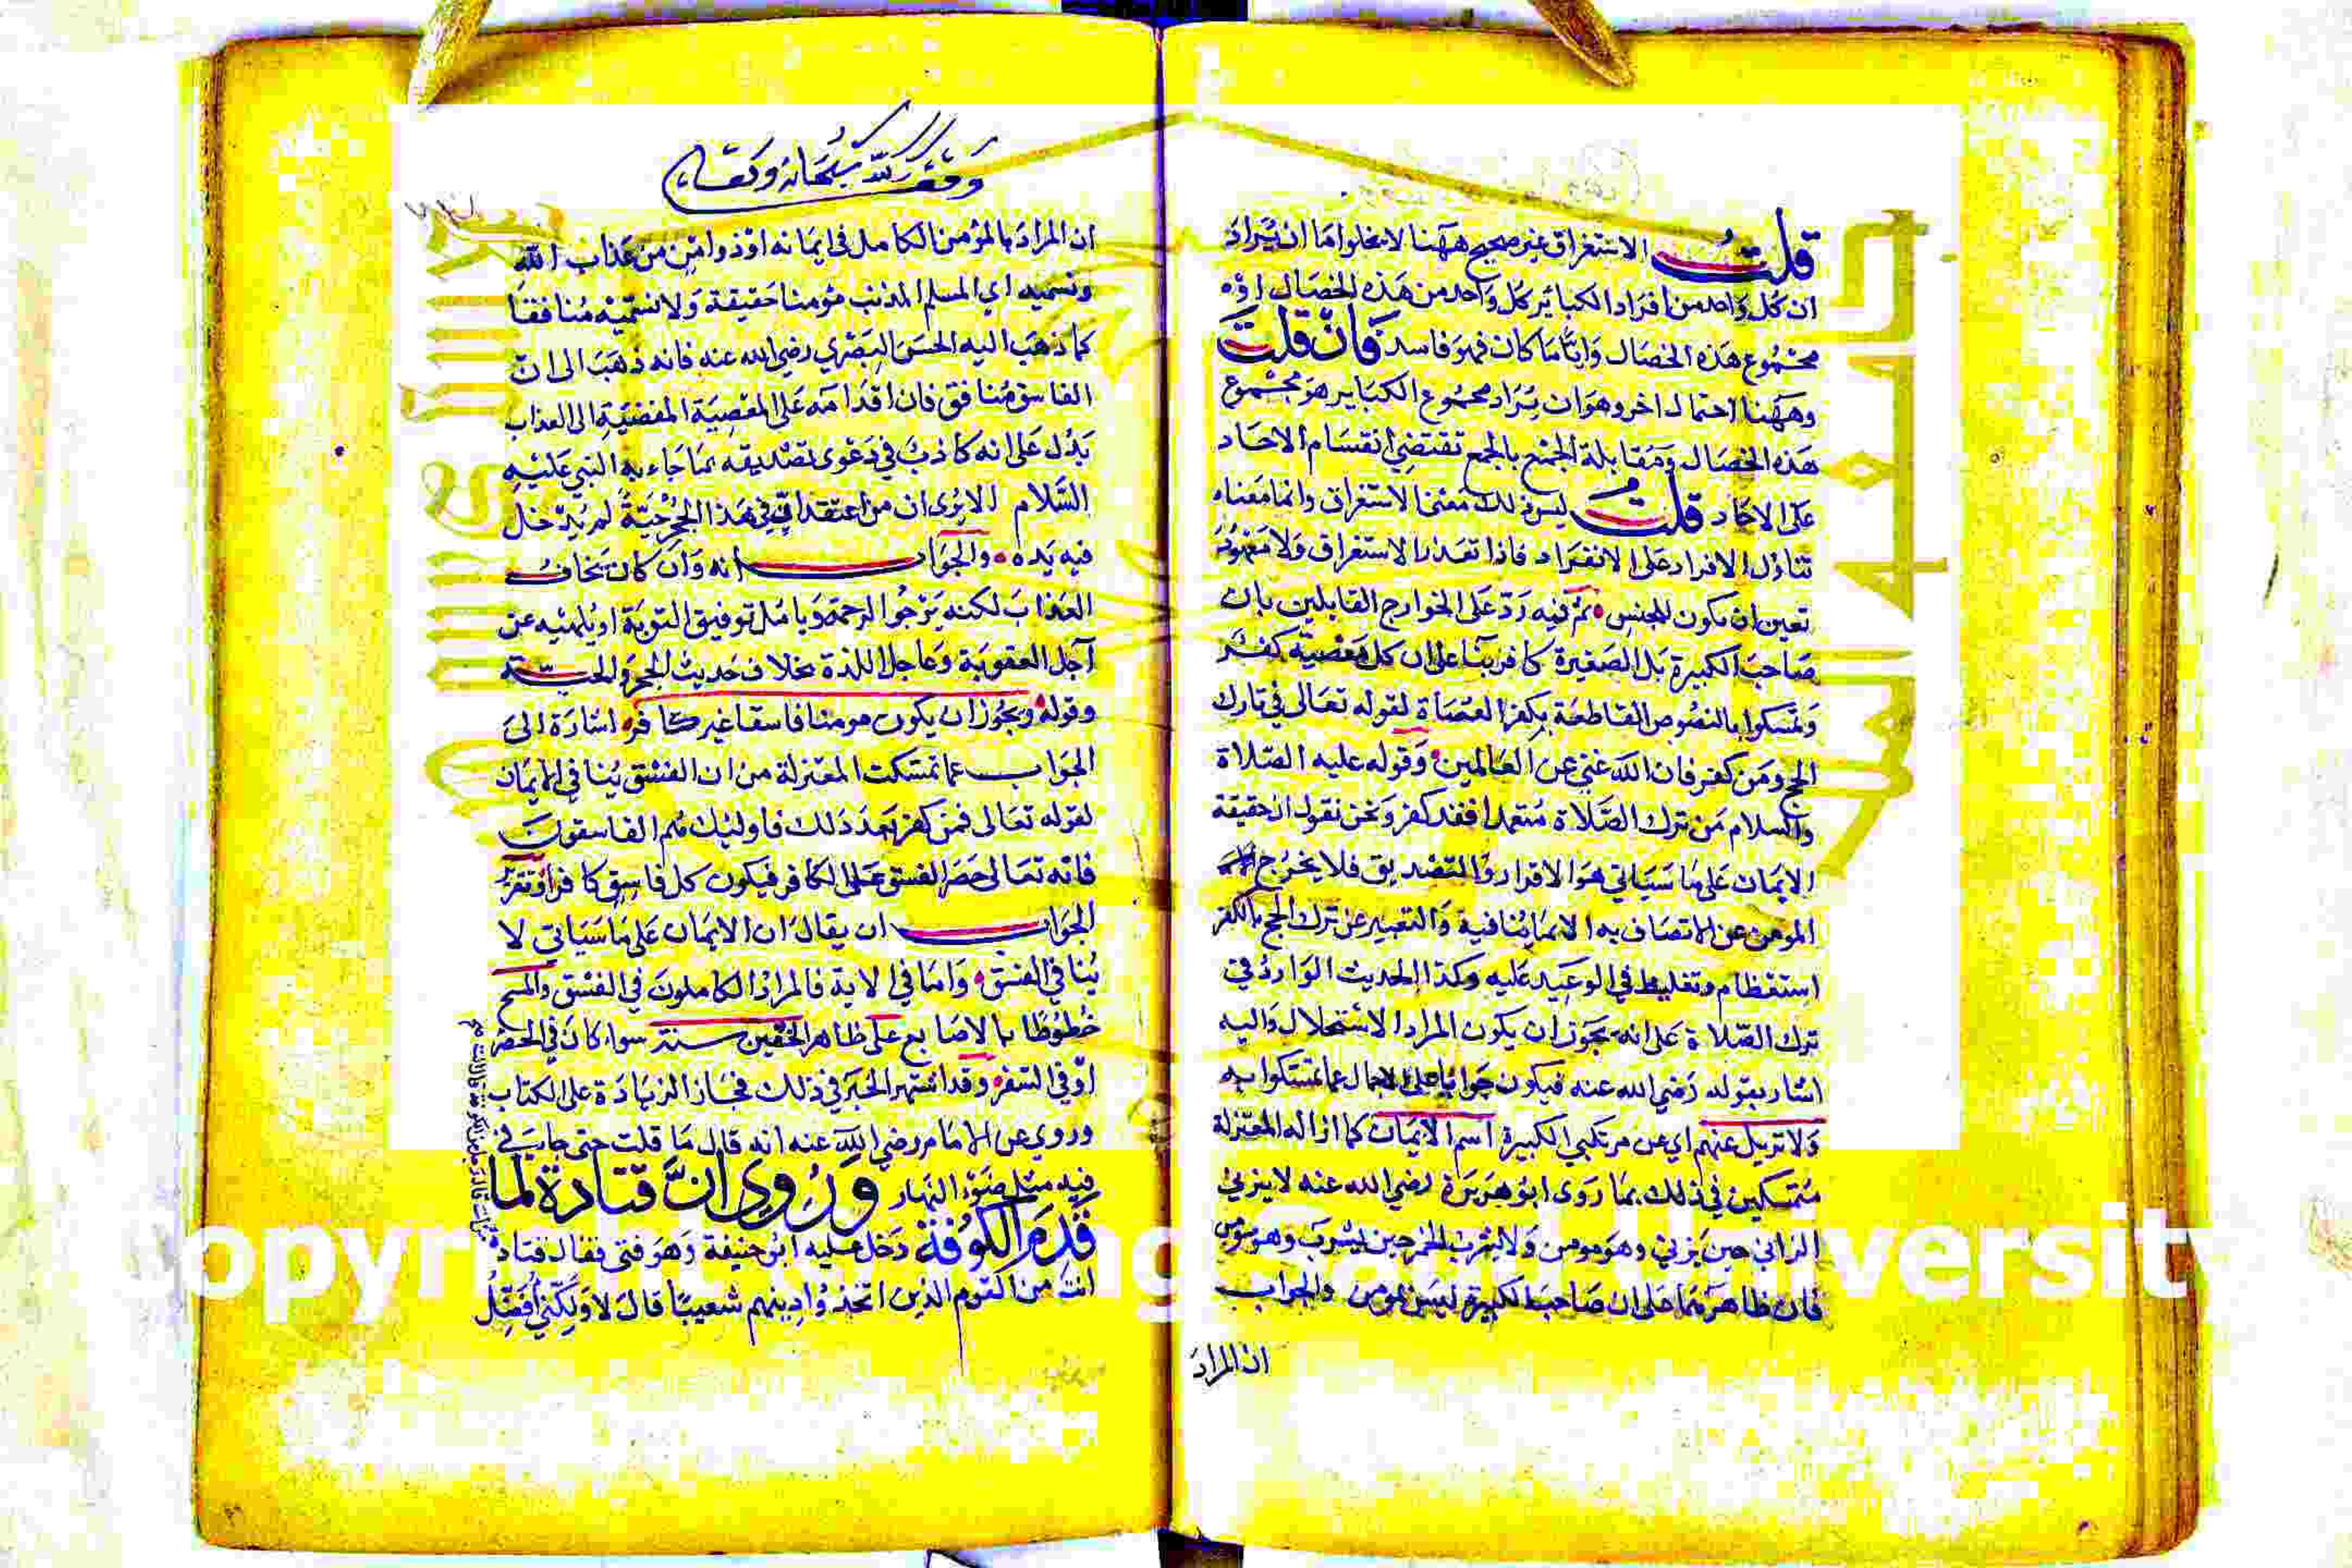 قلت الاستغراق غير صحيح ههنا لا يخلوا اما ان يراد
ان كل واحد من افراد الكباير كل واحد من هذه الخصال او
مجموع هذه الخصال وايا ما كان فهو فاسد فان قلت
وههنا احتمال اخر وهو ان يراد مجموع الكباير هو مجموع
هذه الخصال ومقابلة الجمع بالجمع تقتضي انقسام الاحاد
على الاحاد قلت ليس ذلك معنى الاستغراق وانما معناه
تناول الافراد على الانفراد فاذا تعذر الاستغراق ولا معهود
تعين ان يكون للجنس ثم فيه رد على الخوارج القايلين بان
صاحب الكبيرة بل الصغيرة كافر بنا على ان كل معصية كفر
وتمسكوا بالنصوص القاطعة بكفر العصاة لقوله تعالى في تارك
الحج ومن كفر فان الله غني عن العالمين وقوله عليه الصلاة
والسلام من ترك الصلاة متعمدا فقد كفر ونحن نقول ان حقيقة
الايمان على ما سياتي هو الاقرار والتصديق فلا يخرج
المومن عن الاتصاف به الا بما ينافيه والتعبير عن ترك الحج بالكفر
استعظام وتغليظ في الوعيد عليه وكذا الحديث الوارد في
ترك الصلاة على انه يجوز ان يكون المراد الاستحلال واليه
اشار بقوله رضي الله عنه فيكون جوابا على الاجمال عما تمسكوا به
ولا نزيل عنهم اي عن مرتكبي الكبيرة اسم الايمان كما ازاله المعتزلة
متمسكين في ذلك بما روى ابو هريرة رضي الله عنه لا يزني
الزاني حين يزني وهو مومن ولا يشرب الخمر حين يشرب وهو مومن
فان ظاهرهما على ان صاحب الكبيرة ليس بمومن والجواب
ان المراد
وقف لله سبحانه وتعالى
ان المراد بالمؤمن الكامل في ايمانه او ذو امن من عذاب الله
ونسميه اي المسلم المذنب مؤمنا حقيقة ولا نسميه منافقا
كما ذهب اليه الحسن البصري رضي الله عنه فانه ذهب الى ان
الفاسق منافق فان اقدامه على المعصية المفضية الى العذاب
يدل على انه كاذب في دعوى تصديقه بما جاء به النبي عليه
السلام الا يرى ان من اعتقد ان في هذا الجحر حية لم يدخل
فيه يده والجواب انه وان كان يخاف
العذاب لكنه يرجوا الرحمة ويامل توفيق التوبة او يلهيه عن
آجل العقوبة وعاجل اللذة بخلاف حديث الجحر والحية
وقوله ويجوز ان يكون مومنا فاسقا غير كافر اشارة الى
الجواب عما تمسكت المعتزلة من ان الفسق ينافي الايمان
لقوله تعالى فمن كفر بعد ذلك فاوليك هم الفاسقون
فانه تعالى حصر الفسق على الكافر فيكون كل فاسق كافرا وتقرير
الجواب ان يقال ان الايمان على ما سياتي لا
ينافي الفسق واما في الاية فالمراد الكاملون في الفسق والمسح
خطوطا بالاصابع على ظاهر الخفين سنة سواء كان في الحضر
او في السفر وقد اشتهر الخبر في ذلك فجاز الزيادة على الكتاب
وروي عن الامام رضي الله عنه انه قال ما قلت حتى جاء في
فيه مثل ضوء النهار وروي ان قتادة لما
قدم الكوفة دخل عليه ابو حنيفة وهو فتى فقال قتادة
انت من القوم الذين اتخذوا دينهم شعيبا قال لا ولكني افضل
جامعة الملك سعود
Copyright © King Saud University